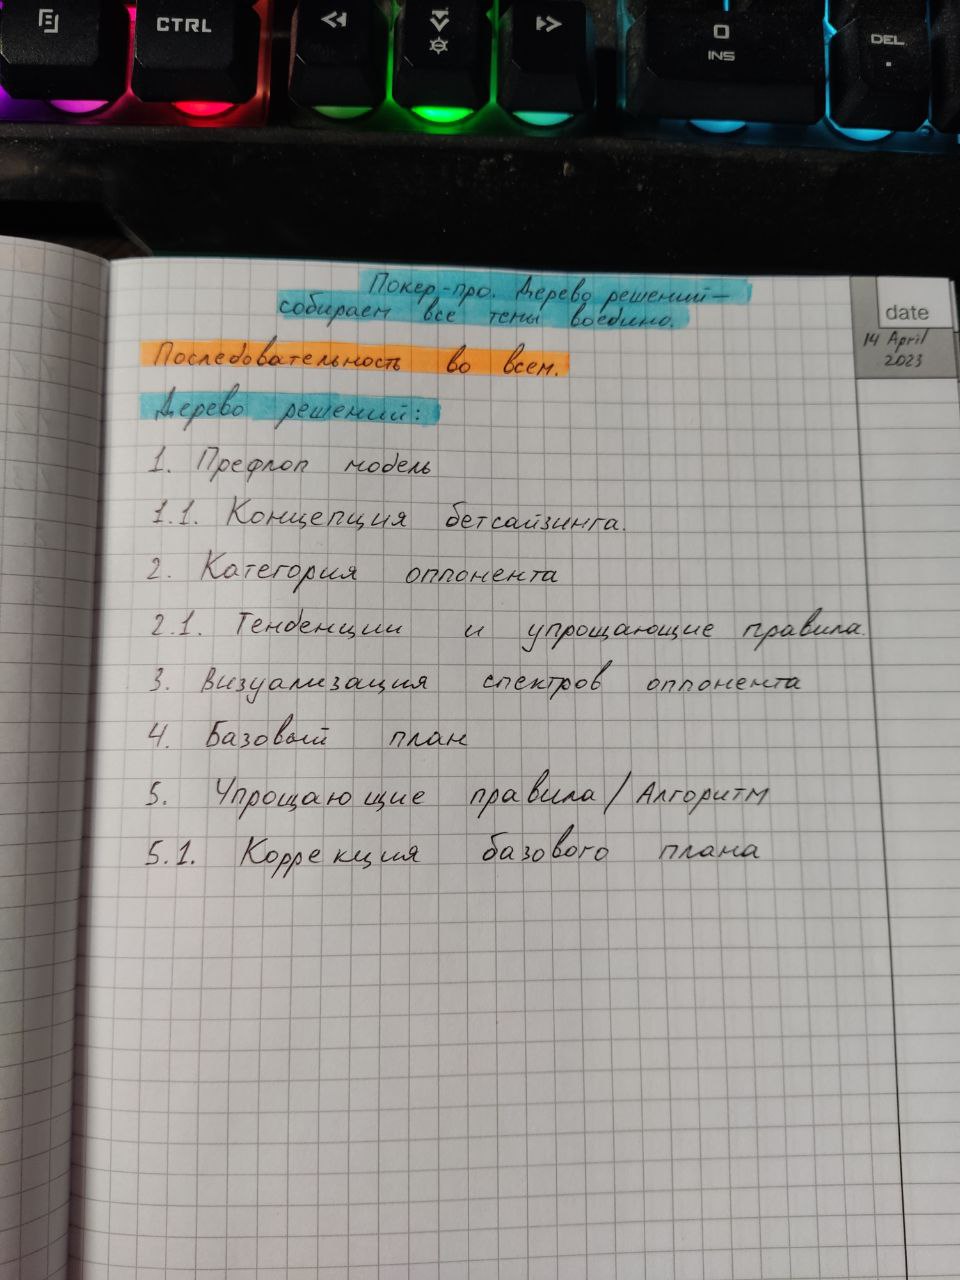 CTRL
0
INS
DEL
.
Покер-про. Дерево решений—
собираем все темы воедино.
date
14 April
2023
Последовательность во всем.
Дерево решений:
1. Префлоп модель
1.1. Концепция бетсайзинга.
2. Категория оппонента
2.1. Тенденции и упрощающие правила.
3. Визуализация спектров оппонента
4. Базовый план
5. Упрощающие правила / Алгоритм
5.1. Коррекция базового плана